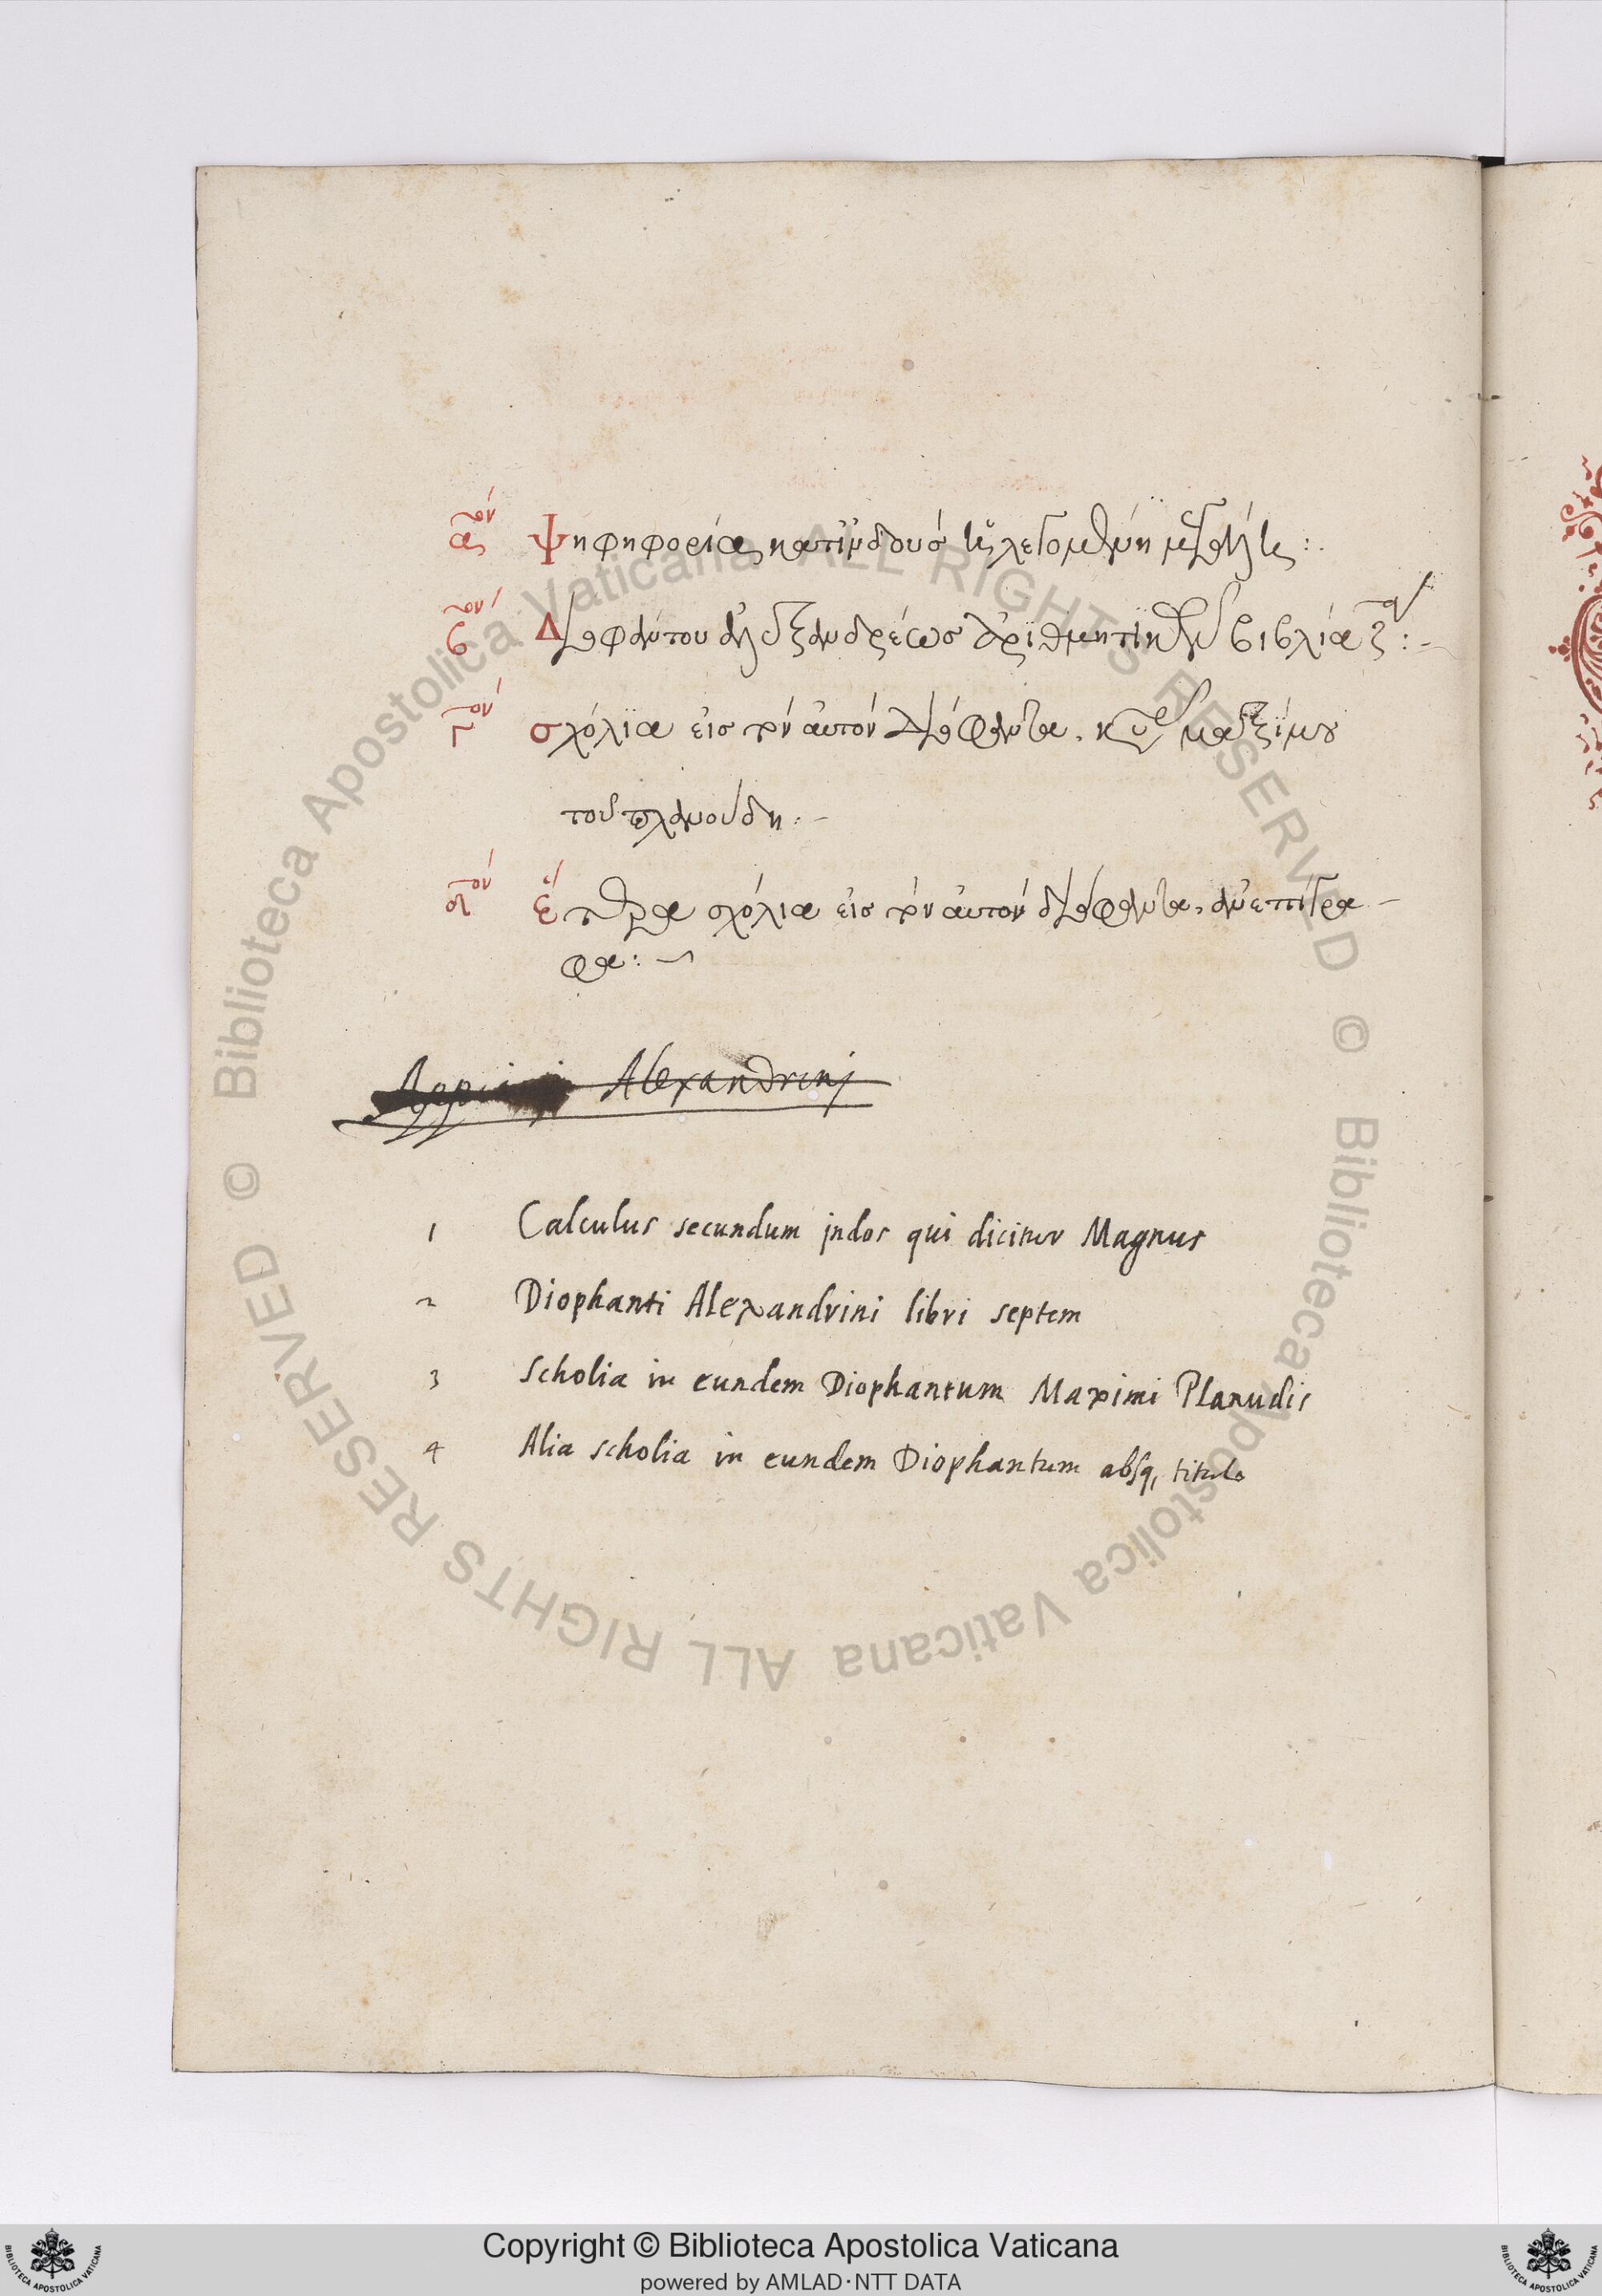 αον ψηφηφορία κατ ϊνδουσ ἡ λεγομένη μεγάλη :.
βον Διοφάντου ἀλεξανδρέωσ ἀριθμητικῶν βιβλία ζ :-
γον σχόλϊα εἰσ τὸν αὐτὸν Διόφαντα. κυρ μαξίμου
τοῦ πλανούδη :-
δον ἕτερα σχόλια εἰσ τὸν αὐτὸν διόφαντα, ἀνεπίγρα-
φα :-
Alexandrinj
1 Calculus secundum jndos qui dicitur Magnus
2 Diophanti Alexandrini libri septem
3 Scholia in eundem Diophantum Maximi Planudis
4 Alia scholia in eundem Diophantum absq, titulo
© Biblioteca Apostolica Vaticana ALL RIGHTS RESERVED © Biblioteca Apostolica Vaticana ALL RIGHTS RESERVED
Copyright © Biblioteca Apostolica Vaticana
powered by AMLAD·NTT DATA
BIBLIOTECA APOSTOLICA VATICANA
BIBLIOTECA APOSTOLICA VATICANA